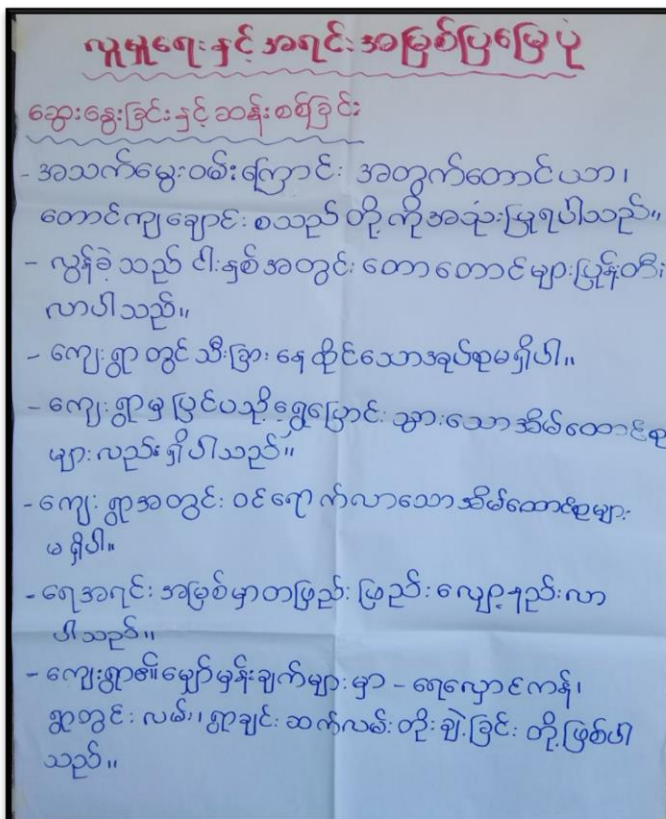 လူမှုရေးနှင့် အရင်းအမြစ်ပြမြေပုံ
ဆွေးနွေးခြင်းနှင့် ဆန်းစစ်ခြင်း
- အသက်မွေးဝမ်းကြောင်း အတွက်တောင်ယာ၊
တောင်ကျချောင်း စသည်တို့ကိုအသုံးပြုရပါသည်။
- လွန်ခဲ့သည် ငါးနှစ်အတွင်း တောတောင်များပြုန်းတီး
လာပါသည်။
- ကျေးရွာတွင် သီးခြားနေထိုင်သောအုပ်စုမရှိပါ။
- ကျေးရွာမှ ပြင်ပသို့ရွှေ့ပြောင်းသွားသောအိမ်ထောင်စု
များလည်းရှိပါသည်။
- ကျေးရွာအတွင်း ဝင်ရောက်လာသောအိမ်ထောင်စုများ
မရှိပါ။
- ရေအရင်းအမြစ်မှာတဖြည်းဖြည်းလျော့နည်းလာ
ပါသည်။
- ကျေးရွာ၏မျှော်မှန်းချက်များမှာ - ရေလှောင်ကန်၊
ရွာတွင်းလမ်း၊ ရွာချင်းဆက်လမ်းတိုးချဲ့ခြင်းတို့ဖြစ်ပါ
သည်။